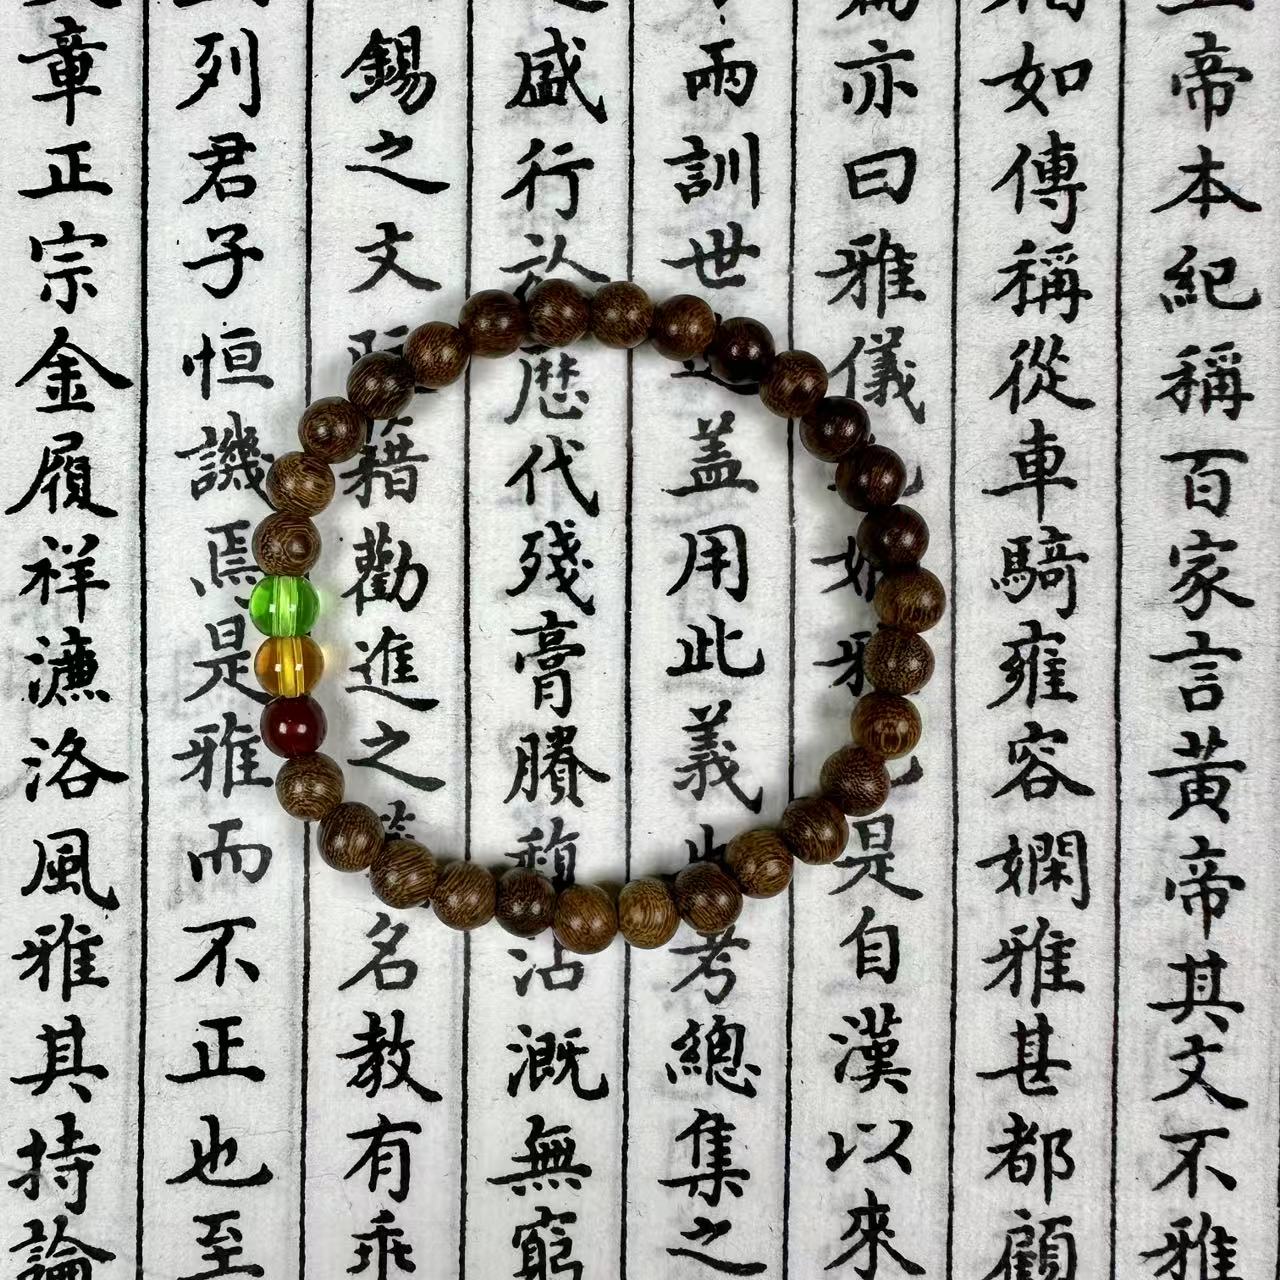 帝本紀稱百家言黃帝其文不雅
如傳稱從車騎雍容嫻雅甚都顧
亦曰雅儀是自漢以來
兩訓世蓋用此義考總集之
盛行於歷代殘膏賸沾溉無窮
錫之文勸進之名教有乖
列君子恒譏焉是雅而不正也至
章正宗金履祥濂洛風雅其持論